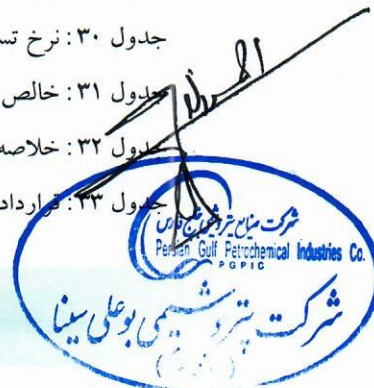 جدول ۳۰: نرخ تس
جدول ۳۱: خالص
جدول ۳۲: خلاصه
جدول ۳۳: قرارداد
شرکت صنایع پتروشیمی خلیج فارس
Persian Gulf Petrochemical Industries Co.
PGPIC
شرکت پتروشیمی بوعلی سینا